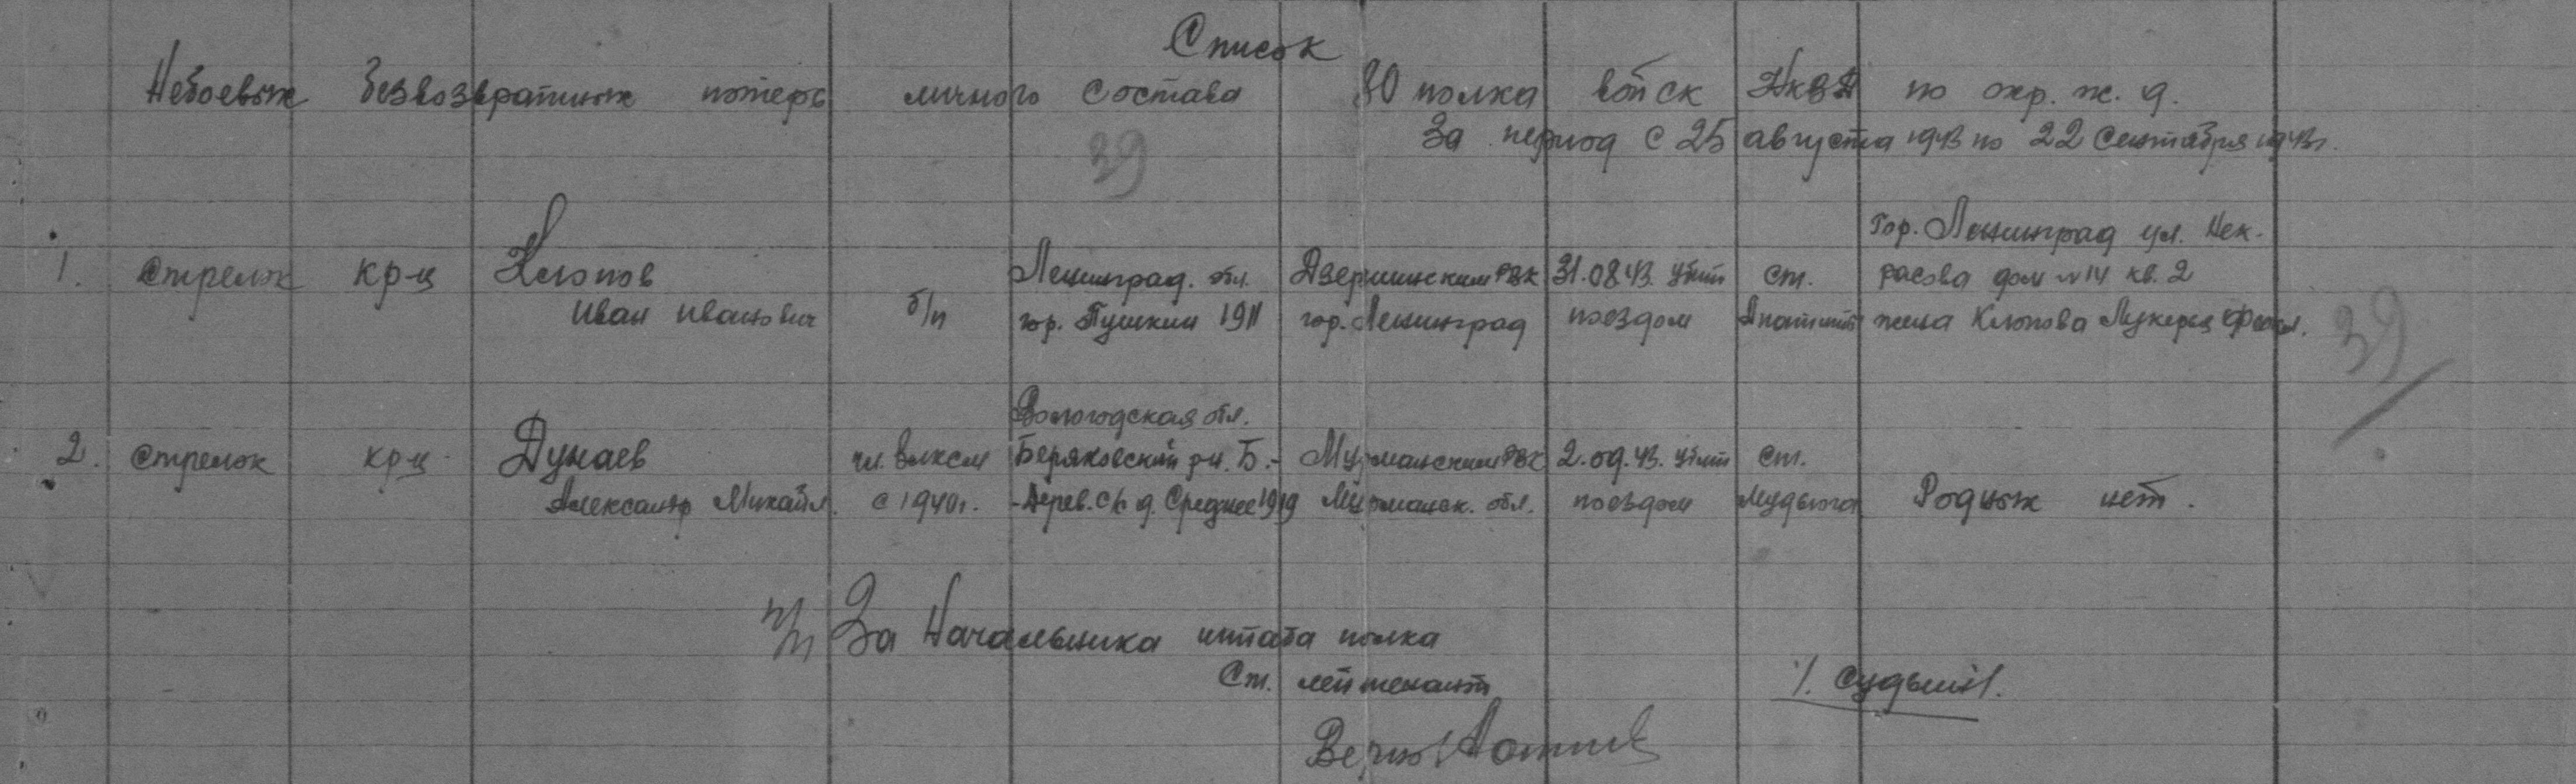 Список
Небоевых безвозвратных потерь личного состава 80 полка войск НКВД по охр. ж. д.
За период с 25 августа 1943 по 22 сентября 1943г.
39
1. стрелок кр-ц Клопов Иван Иванович б/п Ленинград. обл. гор. Пушкин 1911 Дзержинским РВК гор. Ленинград 31.08.43. убит поездом ст. Апатиты Гор. Ленинград ул. Некрасова дом №14 кв. 2 жена Клопова
39
2. стрелок кр-ц Дунаев Александр Михайл. чл. влксм с 1940г. Вологодская обл. Беряковский р-н. Б.-Дерев. с/с д. Среднее 1919 Мурманским РВК Мурманск. обл. 2.09.43. убит поездом ст. Мудьюга Родных нет.
п/п За Начальника штаба полка
Ст. лейтенант
Верно